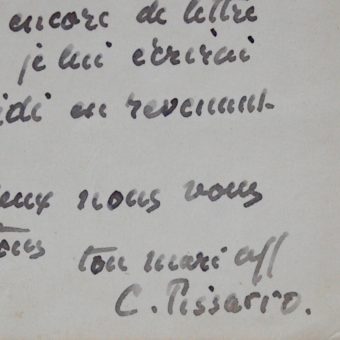 encore de lettre
je lui écrirai
idi en revenant
eux nous vous
ton mari aff
C. Pissarro.